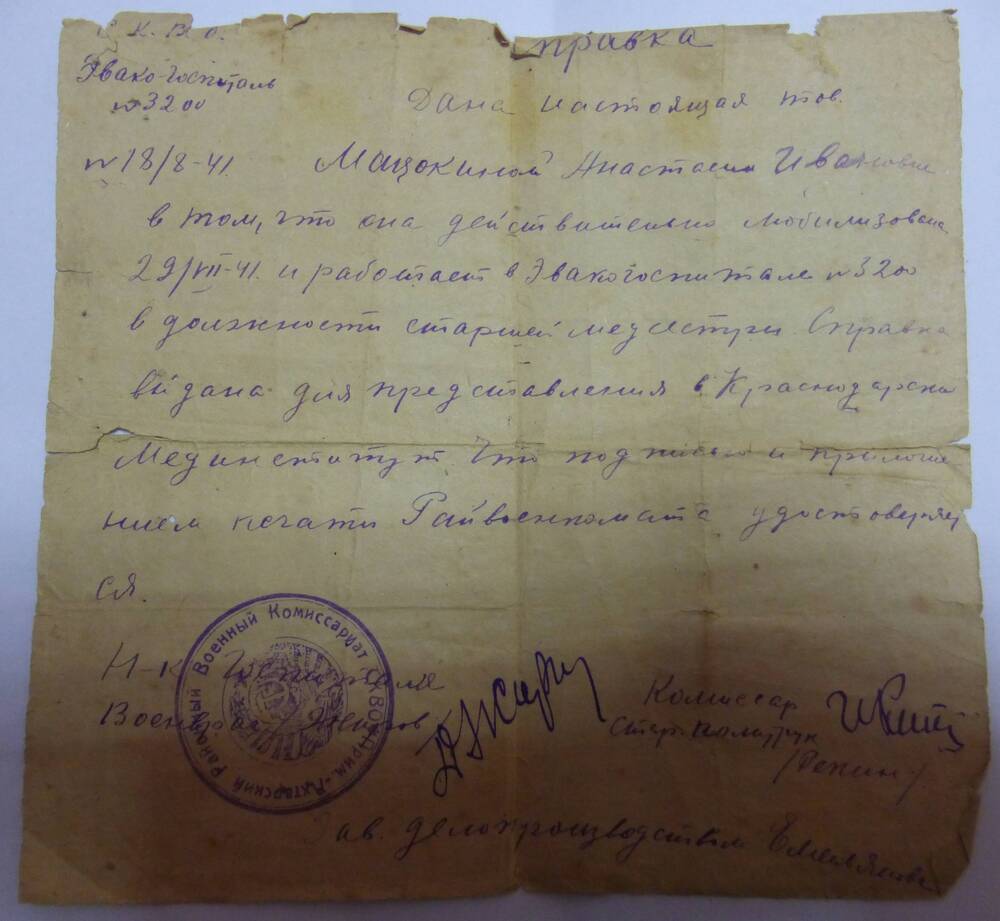 С. К. В. О.
Эвако-госпиталь
№3200
Справка
Дана настоящая тов.
№18/8-41. Мацокиной Анастасии Ивановне
в том, что она действительно мобилизована
29/VII-41. и работает в Эвакогоспитале №3200
в должности старшей медсестры. Справка
выдана для представления в Краснодарски
Мединститут Что подписью и приложе
нием печати Райвоенкомата удостоверяет
ся.
Н-к Госпиталя
Военврач
Комиссар
Стар. политрук
/Репин/
Зав. делопроизводством Емельянова
Прим.-Ахтарский Районный Военный Комиссариат СКВО